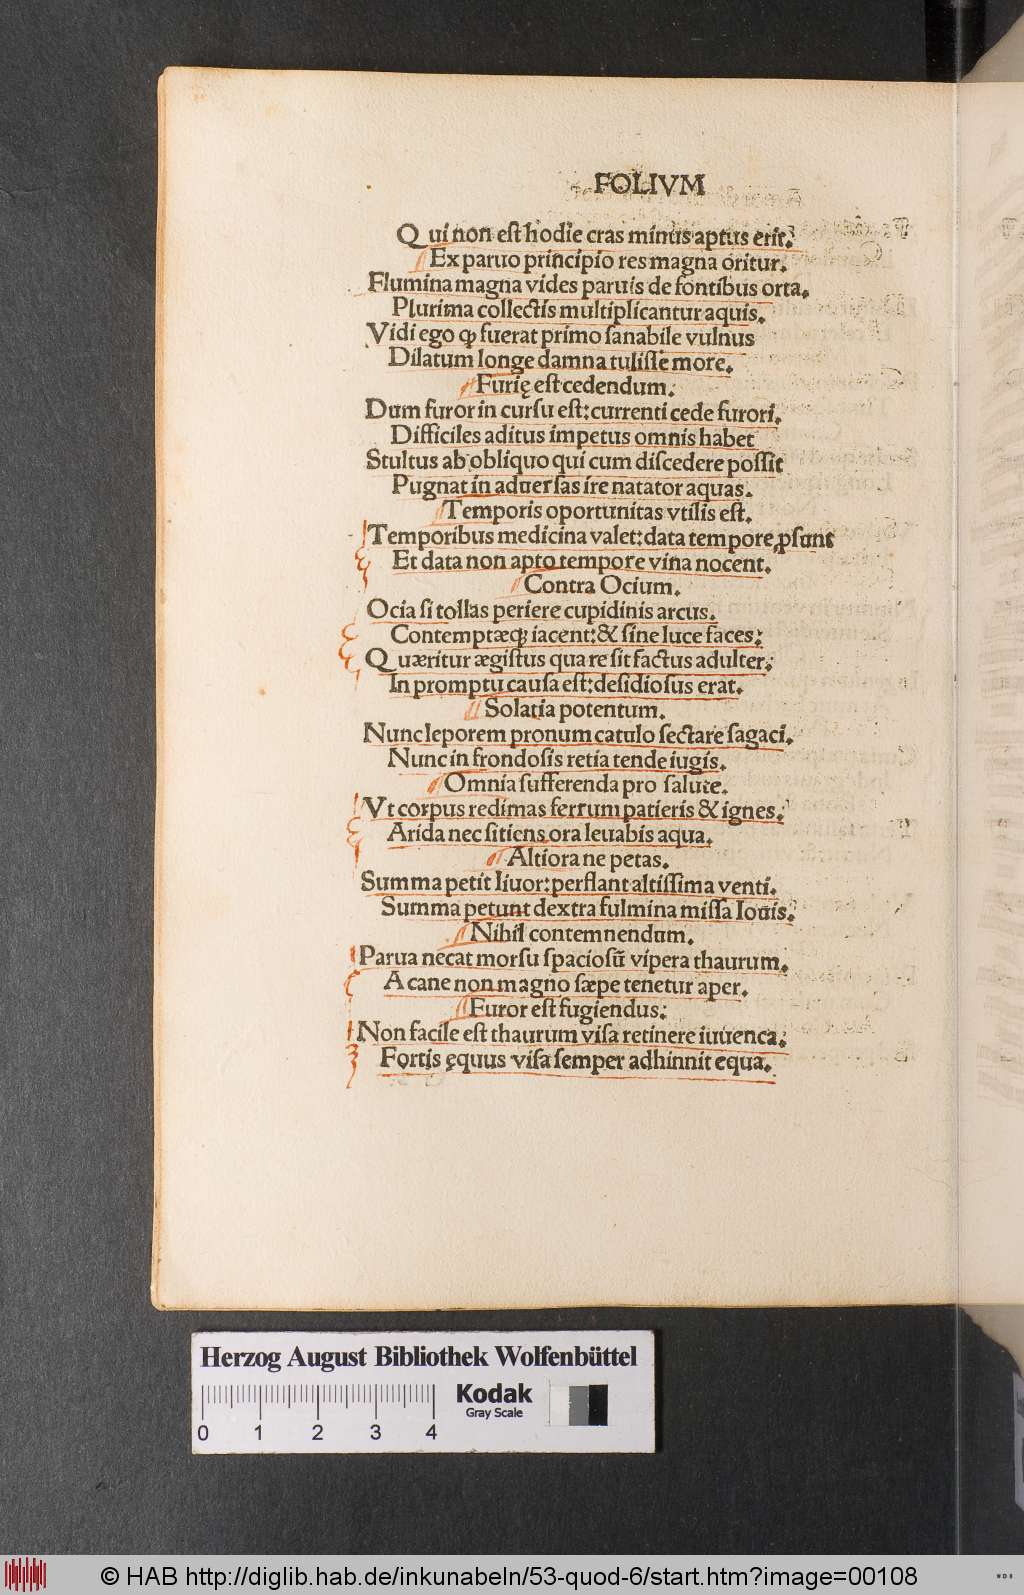 FOLIVM
Qui non est hodie cras minus aptus erit.
Ex paruo principio res magna oritur.
Flumina magna vides paruis de fontibus orta.
Plurima collectis multiplicantur aquis.
Vidi ego ꝙ fuerat primo sanabile vulnus
Dilatum longe damna tulisse more.
Furię est cedendum.
Dum furor in cursu est: currenti cede furori.
Difficiles aditus impetus omnis habet
Stultus ab obliquo qui cum discedere possit
Pugnat in aduersas ire natator aquas.
Temporis oportunitas vtilis est.
Temporibus medicina valet: data tempore ꝓsunt
Et data non apto tempore vina nocent.
Contra Ocium.
Ocia si tollas periere cupidinis arcus.
Contemptæqꝫ iacent: & sine luce faces:
Quæritur ægistus qua re sit factus adulter:
In promptu causa est: desidiosus erat.
Solatia potentum.
Nunc leporem pronum catulo sectare sagaci.
Nunc in frondosis retia tende iugis.
Omnia sufferenda pro salute.
Vt corpus redimas ferrum patieris & ignes.
Arida nec sitiens ora leuabis aqua.
Altiora ne petas.
Summa petit liuor: perflant altissima venti.
Summa petunt dextra fulmina missa Iouis.
Nihil contemnendum.
Parua necat morsu spaciosū vipera thaurum.
A cane non magno sæpe tenetur aper.
Furor est fugiendus:
Non facile est thaurum visa retinere iuuenca:
Fortis ęquus visa semper adhinnit equa.
Herzog August Bibliothek Wolfenbüttel
Kodak
Gray Scale
0 1 2 3 4
© HAB http://diglib.hab.de/inkunabeln/53-quod-6/start.htm?image=00108